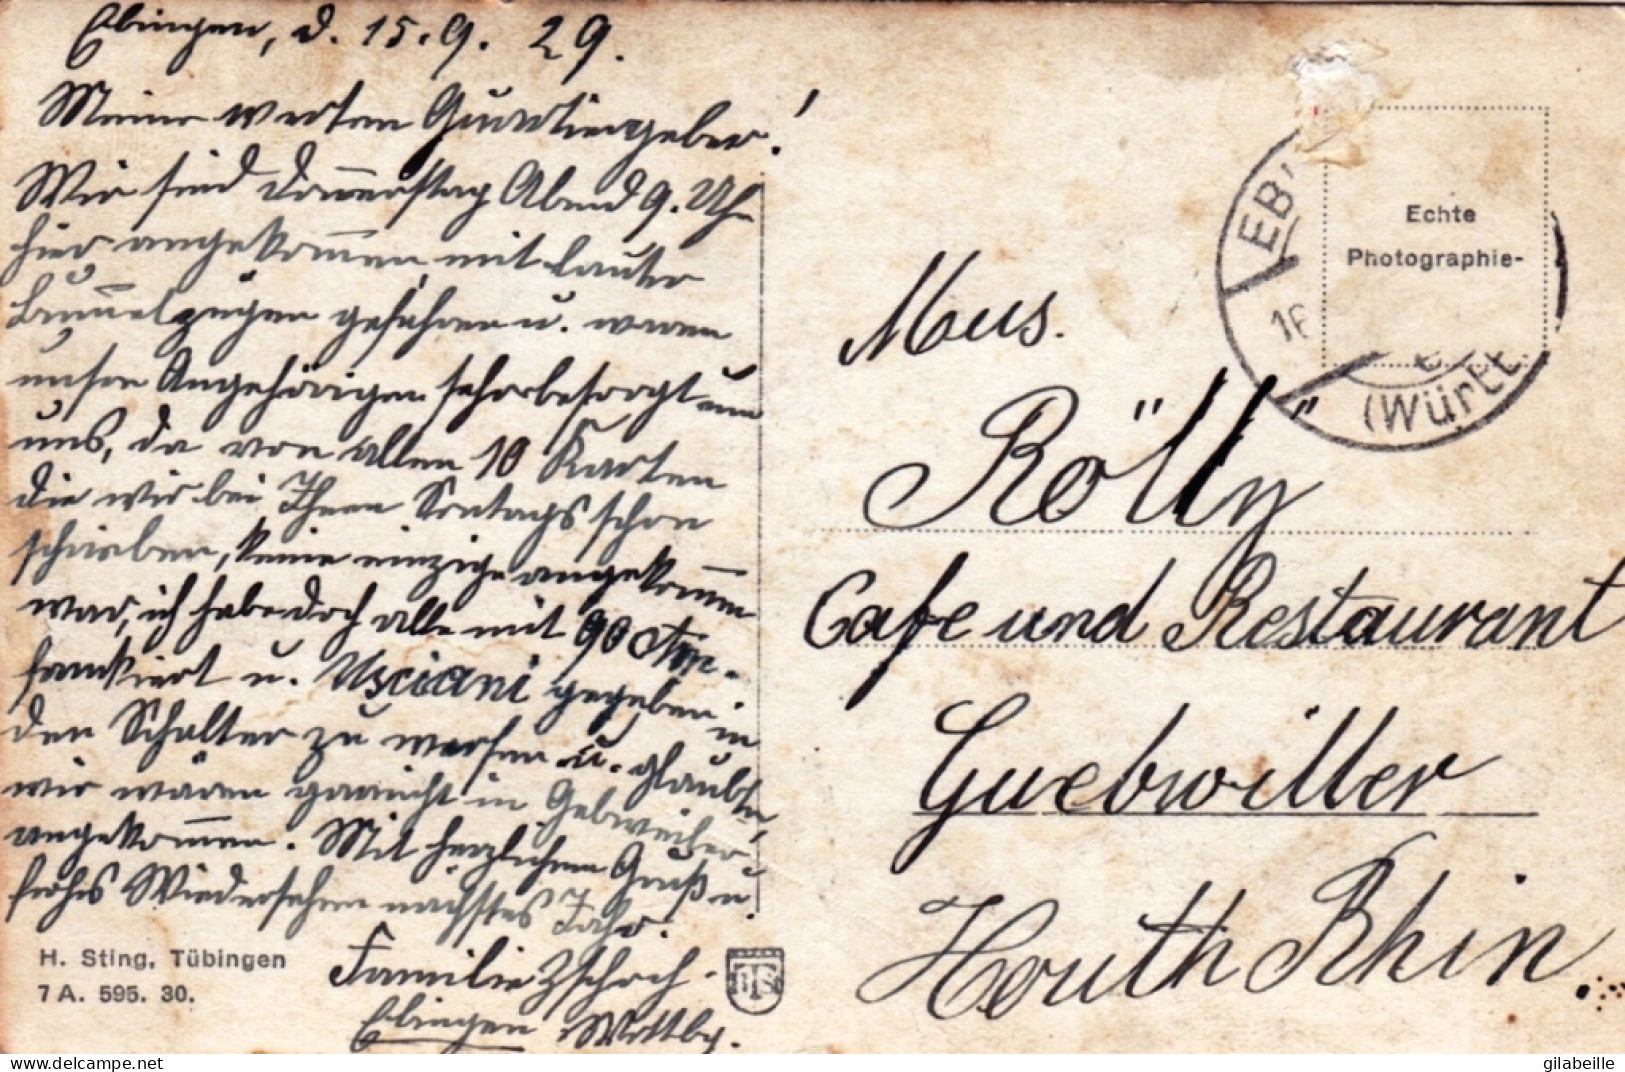 Ebingen, d. 15.9.29.
Meine werten Quartiergeber!
Wir sind Donnerstag Abend 9. Uhr
hier angekommen, mit lauter
Bummelzügen gefahren u. waren
unsre Angehörigen sehr besorgt um
uns, da von allen 10 Karten
die wir bei Ihnen Sontags schon
schrieben, keine einzige angekommen
war, ich habe doch alle mit 90 Ctm.
frankiert u. gegeben in
den Schalter zu werfen u. glaubte,
wir wären garnicht in Gebweiler
angekommen. Mit herzlichem Gruß u.
frohes Wiedersehen nächstes Jahr.
Familie Zschoch.
Ebingen Württbg.
H. Sting, Tübingen
7 A. 595. 30.
Echte
Photographie-
EB
16
(Württ.
Mus.
Rölly
Cafe und Restaurant
Guebwiller
Houth Rhin.
gilabeille